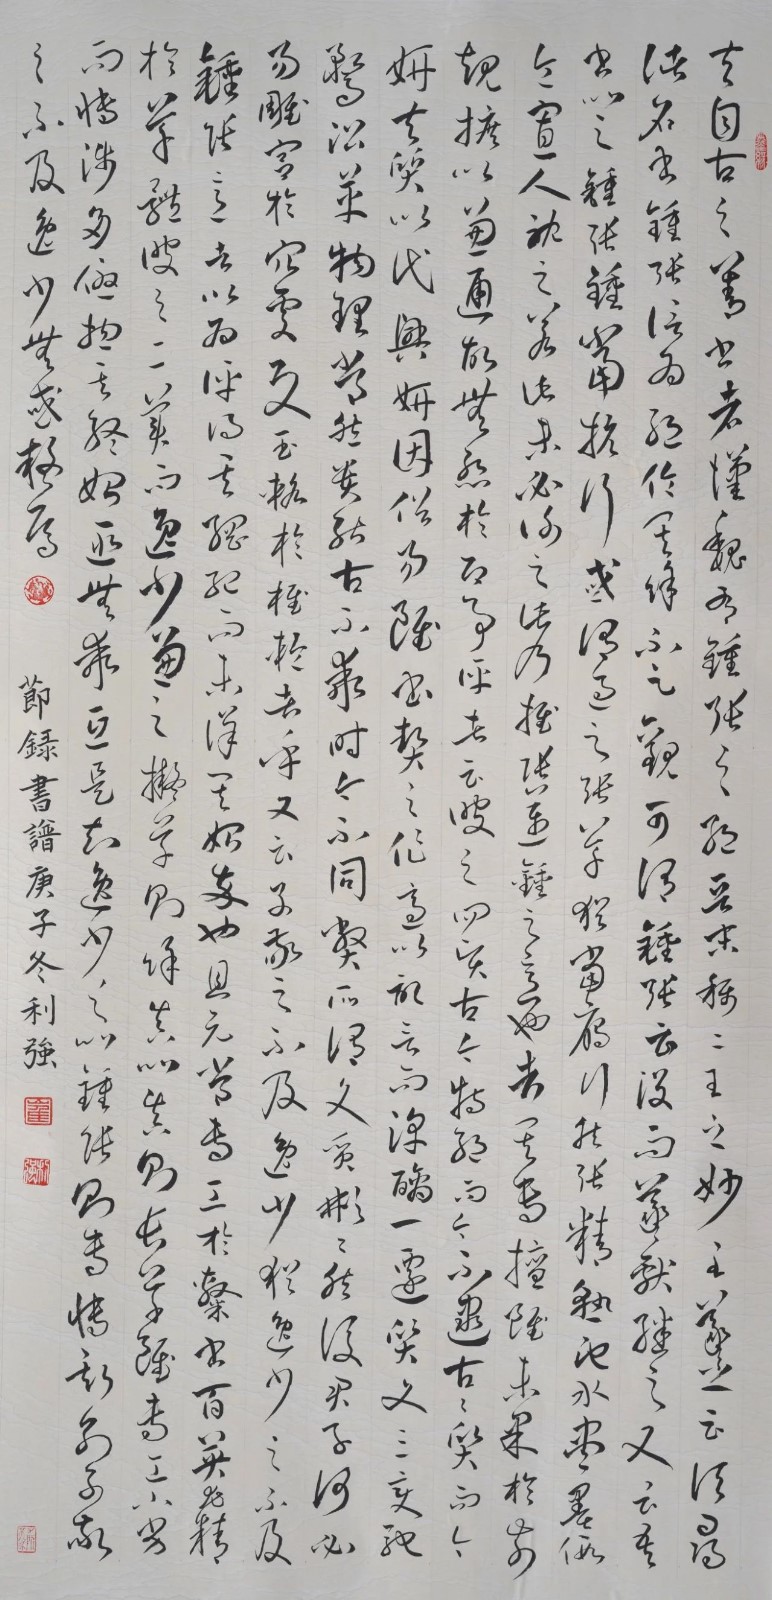 夫自古之善書者漢魏有鍾張之絕晉末稱二王之妙王羲之云頃尋
諸名書鍾張信為絕倫其餘不足觀可謂鍾張云沒而羲獻繼之又云吾
書比之鍾張鍾當抗行或謂過之張草猶當雁行然張精熟池水盡墨假
令寡人耽之若此未必謝之此乃推張邁鍾之意也考其專擅雖未果於前
規摭以兼通故無慚於即事評者云彼之四賢古今特絕而今不逮古古質而今
妍夫質以代興妍因俗易雖書契之作適以記言而淳醨一遷質文三變馳
騖沿革物理常然貴能古不乖時今不同弊所謂文質彬彬然後君子何必
易雕宮於穴處反玉輅於椎輪者乎又云子敬之不及逸少猶逸少之不及
鍾張意者以為評得其綱紀而未詳其始卒也且元常專工於隸書百英尤精
於草體彼之二美而逸少兼之擬草則餘真比真則長草雖專工小劣
而博涉多優總其終始匪無乖互是知逸少之比鍾張則專博斯別子敬
之不及逸少無或疑焉
節録書譜庚子冬利強
崔
利強